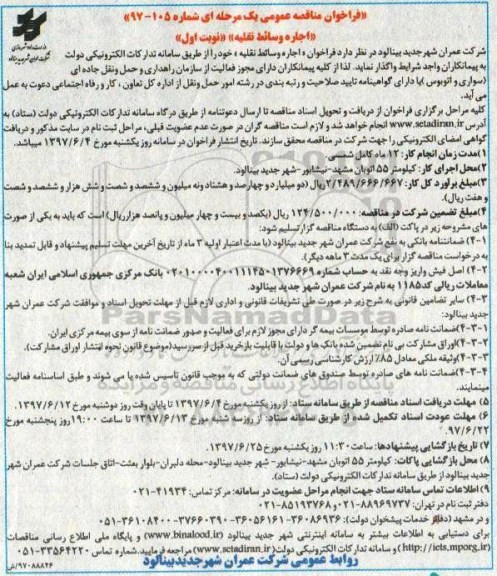 «فراخوان مناقصه عمومی یک مرحله ای شماره ۱۰۵-۹۷»
«اجاره وسائط نقلیه» «نوبت اول»
شرکت عمران شهر جدید بینالود در نظر دارد فراخوان «اجاره وسائط نقلیه» خود را از طریق سامانه تدارکات الکترونیکی دولت
به پیمانکاران واجد شرایط واگذار نماید. لذا از کلیه پیمانکاران دارای مجوز فعالیت از سازمان راهداری و حمل ونقل جاده ای
(سواری و اتوبوس) یا دارای گواهینامه تایید صلاحیت و رتبه بندی در رشته امور حمل ونقل از اداره کل تعاون ، کار و رفاه اجتماعی دعوت به عمل
می آید.
کلیه مراحل برگزاری فراخوان از دریافت و تحویل اسناد مناقصه تا ارسال دعوتنامه از طریق درگاه سامانه تدارکات الکترونیکی دولت (ستاد) به
آدرس www.setadiran.ir انجام خواهد شد و لازم است مناقصه گران در صورت عدم عضویت قبلی، مراحل ثبت نام در سایت مذکور و دریافت
گواهی امضای الکترونیکی را جهت شرکت در مناقصه محقق سازند. تاریخ انتشار فراخوان در سامانه روز یکشنبه مورخ ۱۳۹۷/۶/۴ میباشد.
۱)مدت زمان انجام کار: ۱۲ماه کامل شمسی
۲)محل اجرای کار: کیلومتر ۵۵ اتوبان مشهد-نیشابور-شهر جدید بینالود.
۳)مبلغ برآورد کل کار: ۲/۴۸۹/۶۶۶/۶۶۷ ریال (دو میلیارد و چهارصد و هشتاد ونه میلیون و ششصد و شصت و شش هزار و ششصد و شصت
و هفت ریال).
۴)مبلغ تضمین شرکت در مناقصه: ۱۲۴/۵۰۰/۰۰۰ ریال (یکصد و بیست و چهار میلیون و پانصد هزارریال) است که باید به یکی از صورت
های مشروحه زیر در پاکت (الف) به دستگاه مناقصه گزار تسلیم شود:
۱-۴)ضمانتنامه بانکی به نفع شرکت عمران شهر جدید بینالود (با مدت اعتبار اولیه ۳ ماه از تاریخ آخرین مهلت تسلیم پیشنهاد و قابل تمدید بنا
به درخواست مناقصه گزار برای یک مدت ۳ ماهه دیگر).
۲-۴) اصل فیش واریز وجه نقد به حساب شماره بانک مرکزی جمهوری اسلامی ایران شعبه
معاملات ریالی کد۱۱۸۵ به نام شرکت عمران شهر جدید بینالود.
۳-۴) سایر تضامین قانونی به شرح زیر در صورت طی تشریفات قانونی و اداری لازم قبل از مهلت تحویل اسناد و موافقت شرکت عمران شهر
جدید بینالود:
۱-۳-۴)ضمانت نامه صادره توسط موسسات بیمه گر دارای مجوز لازم برای فعالیت و صدور ضمانت نامه از سوی بیمه مرکزی ایران.
۲-۳-۴)اوراق مشارکت بی نام تضمین شده بانک ها و دولت با قابلیت بازخرید قبل از سررسید(موضوع قانون نحوه انتشار اوراق مشارکت).
۳-۳-۴)وثیقه ملکی معادل ۸۵٪ ارزش کارشناسی رسمی آن.
۴-۳-۴)ضمانت نامه های صادره توسط صندوق های ضمانت دولتی که به موجب قانون تاسیس شده یا می شوند و طبق اساسنامه فعالیت
مینمایند.
۵) مهلت دریافت اسناد مناقصه از طریق سامانه ستاد: از روز یکشنبه مورخ ۱۳۹۷/۶/۴ تا پایان وقت روز دوشنبه مورخ ۱۳۹۷/۶/۱۲.
۶) مهلت عودت اسناد تکمیل شده از طریق سامانه ستاد: از روز سه شنبه مورخ ۱۳۹۷/۶/۱۳ تا ساعت ۱۹:۰۰ روز پنجشنبه مورخ
۹۷/۶/۲۲.
۷) تاریخ بازگشایی پیشنهادها: ساعت ۱۱:۳۰ روز یکشنبه مورخ ۱۳۹۷/۶/۲۵
۸) محل بازگشایی پاکات: کیلومتر ۵۵ اتوبان مشهد-نیشابور- شهر جدید بینالود-محله دلیران-بلوار بعثت-اتاق جلسات شرکت عمران شهر
جدید بینالود از طریق سامانه تدارکات الکترونیکی دولت (ستاد).
۹) اطلاعات تماس سامانه ستاد جهت انجام مراحل عضویت در سامانه: مرکز تماس: ۴۱۹۳۴-۰۲۱
دفتر ثبت نام در تهران: ۸۸۹۶۹۷۳۷-۰۲۱ و ۸۵۱۹۳۷۶۸-۰۲۱
و در مشهد (دفاتر خدمات پیشخوان دولت): ۳۶۰۸۶۹۳۶-۳۶۰۵۶۱۶۱-۳۷۶۶۰۳۹۰-۳۶۱۰۸۴۰۰-۰۵۱
برای دستیابی به اطلاعات بیشتر به سامانه اینترنتی شهر جدید بینالود (www.binalood.ir) و پایگاه ملی اطلاع رسانی مناقصات
(http://iets.mporg.ir) و سامانه تدارکات الکترونیکی دولت (www.setadiran.ir) مراجعه فرمایید. شماره تماس: ۳۳۵۶۴۲۲۰-۰۵۱
روابط عمومی شرکت عمران شهرجدیدبینالود
۹۷۰۸۸۲۶/ش